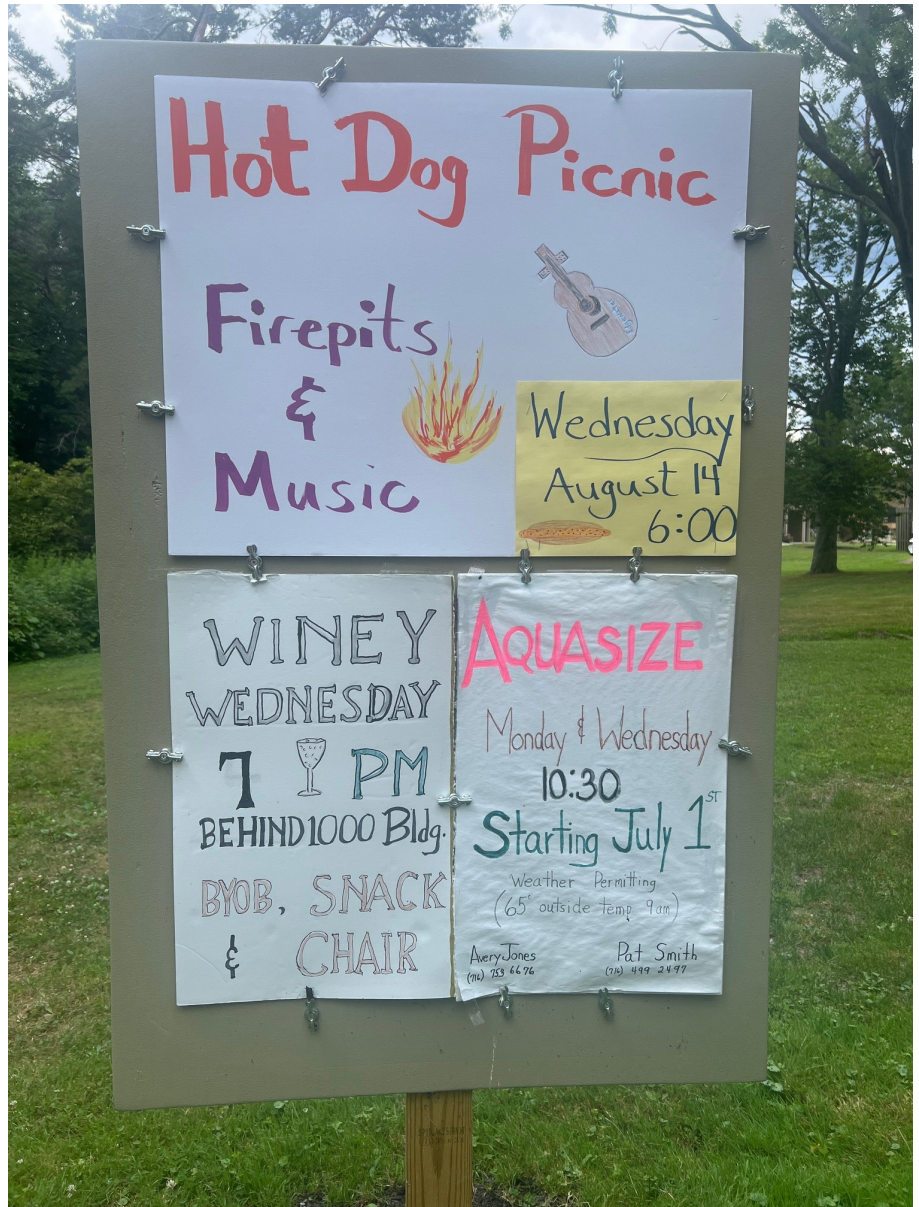 Hot Dog Picnic
Firepits
&
Music
Wednesday
August 14
6:00
WINEY
WEDNESDAY
7 PM
BEHIND 1000 Bldg.
BYOB, SNACK
& CHAIR
AQUASIZE
Monday & Wednesday
10:30
Starting July 1ST
Weather Permitting
(65° outside temp 9am)
Avery Jones
(716) 753 6676
Pat Smith
(716) 499 2497